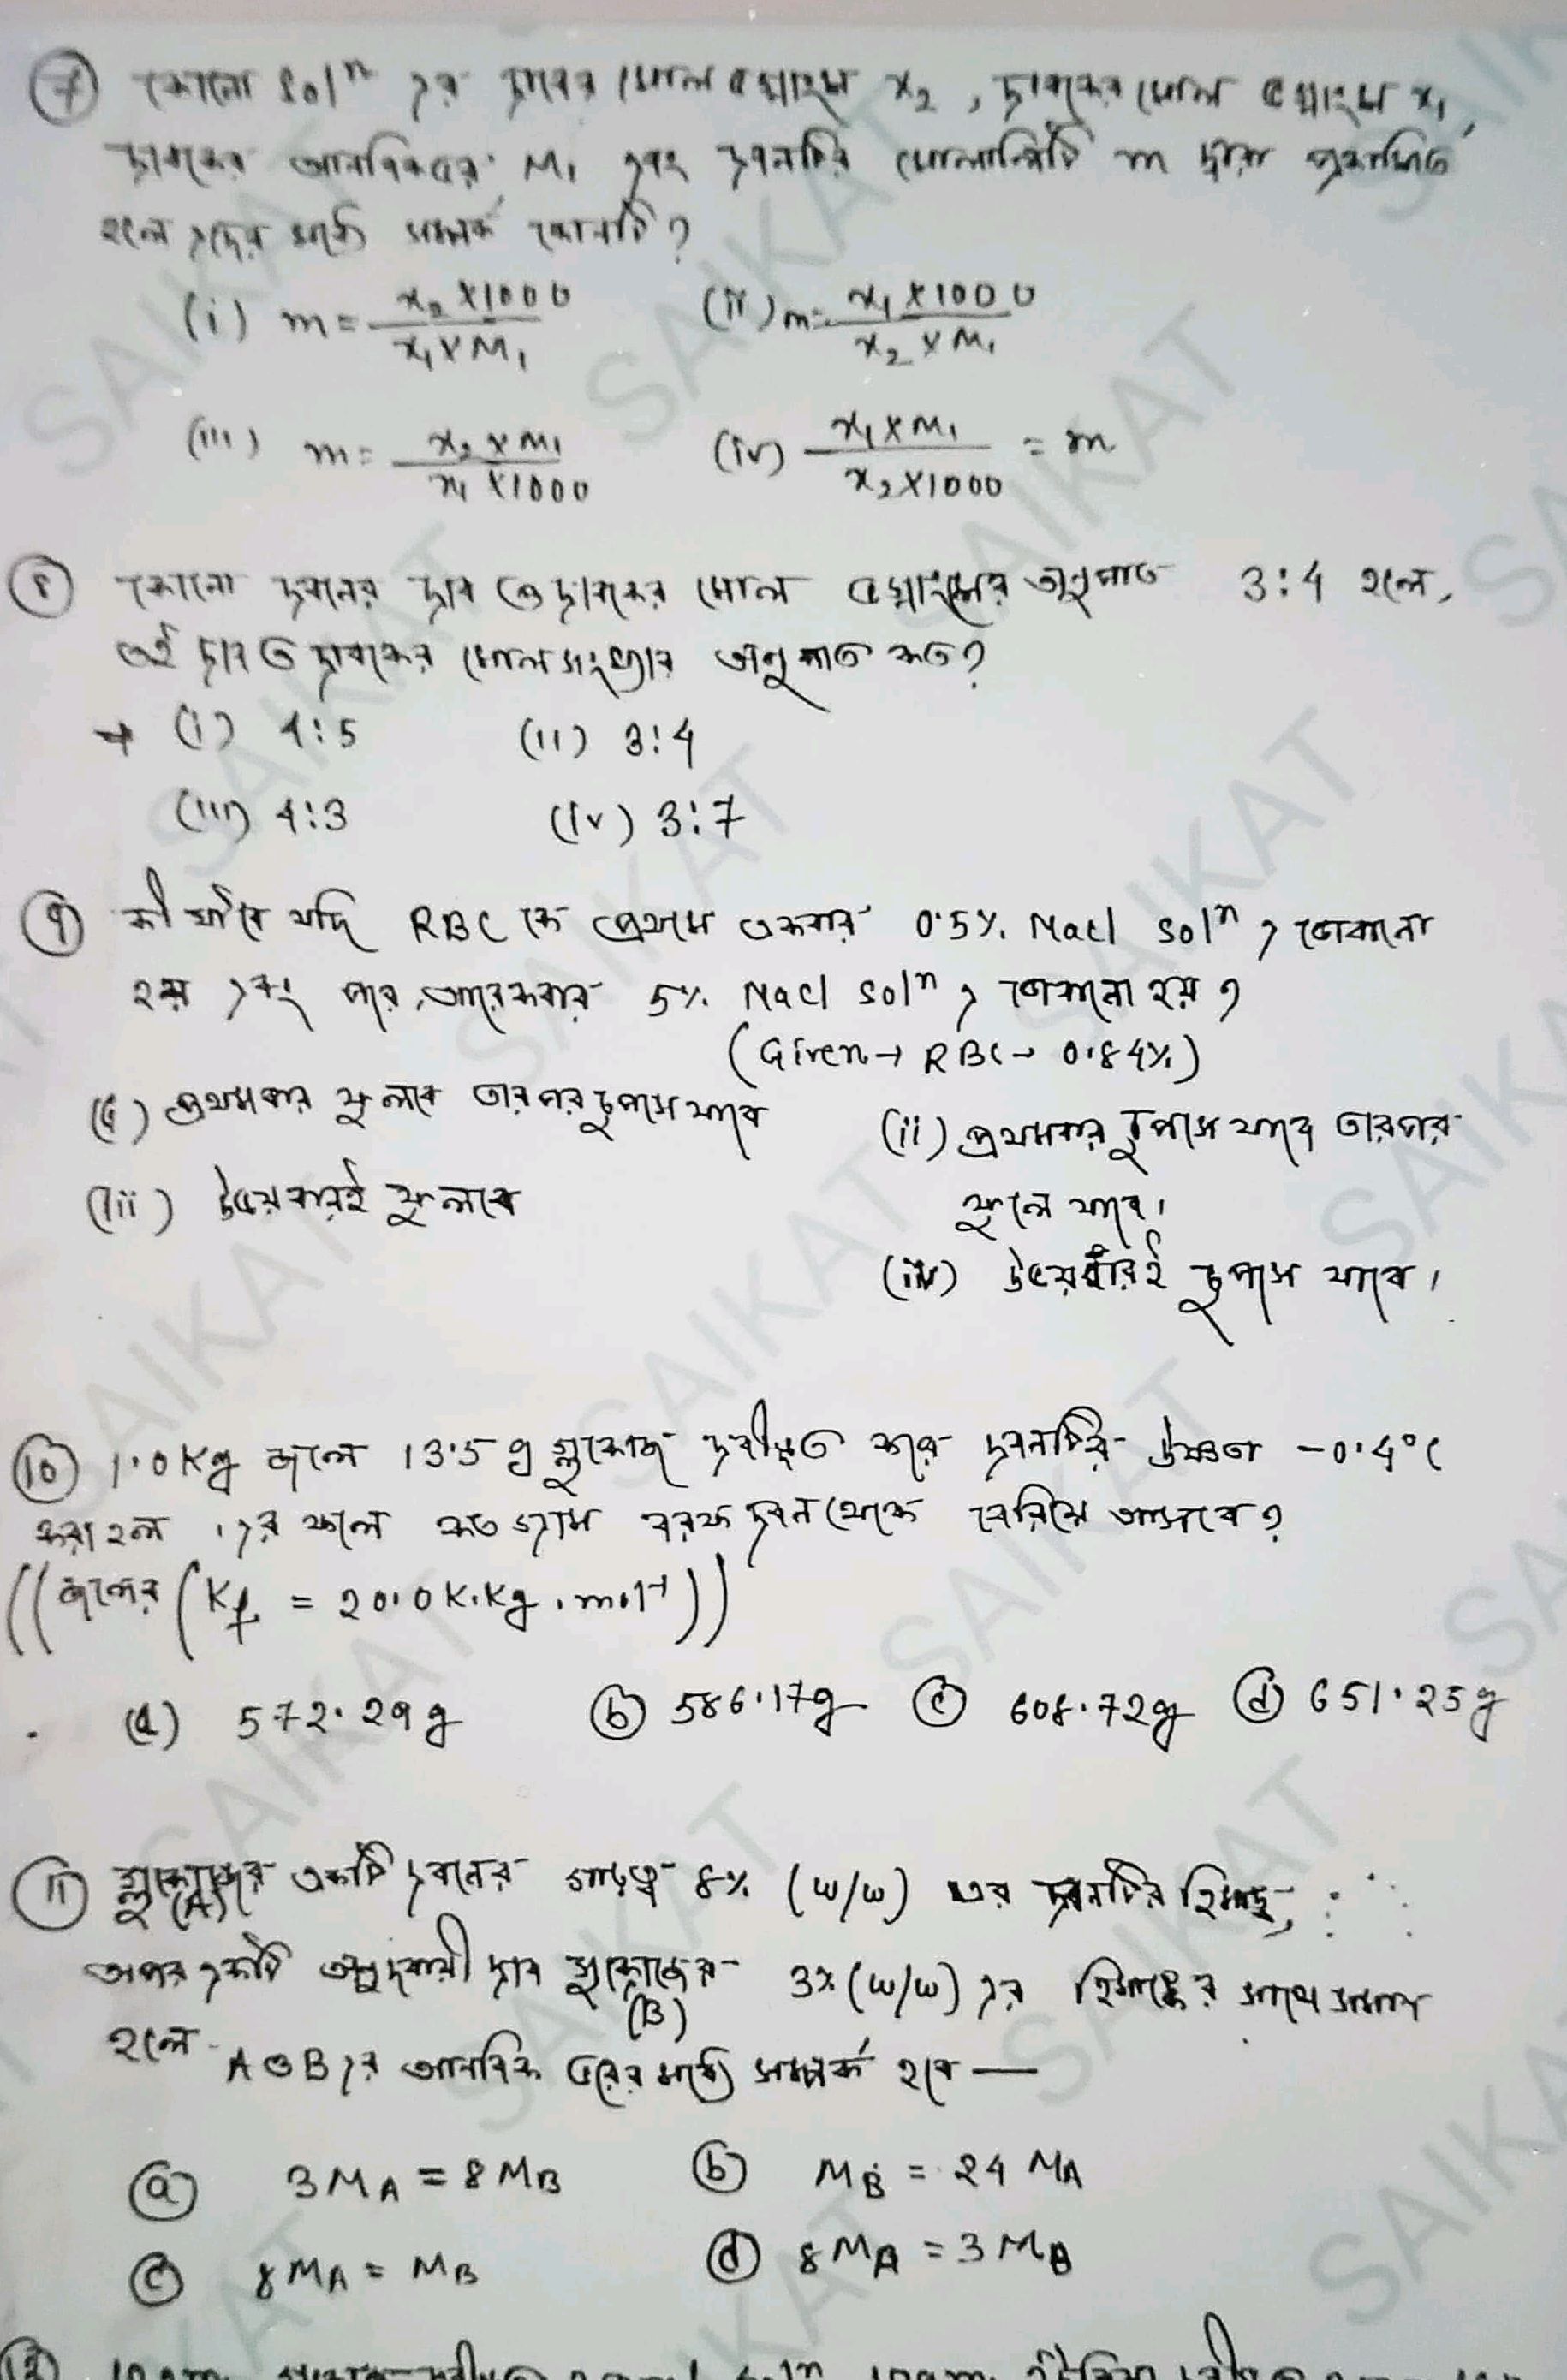 7 কোনো solⁿ এর দ্রাবের মোল ভগ্নাংশ x₂, দ্রাবকের মোল ভগ্নাংশ x₁,
দ্রাবকের আনবিকভর M₁ এবং দ্রবনটির মোলালিটি m দ্বারা প্রকাশিত
হলে এদের মধ্যে সম্পর্ক কোনটি?
(i) m = x₂ × 1000 / x₁ × M₁ (ii) m = x₁ × 1000 / x₂ × M₁
(iii) m = x₂ × M₁ / x₁ × 1000 (iv) x₁ × M₁ / x₂ × 1000 = m
8 কোনো দ্রবনের দ্রাব ও দ্রাবকের মোল ভগ্নাংশের অনুপাত 3:4 হলে,
ওই দ্রাব ও দ্রাবকের মোল সংখ্যার অনুপাত কত?
→ (i) 4:5 (ii) 3:4
(iii) 4:3 (iv) 3:7
9 কী হবে যদি RBC কে প্রথমে একবার 0.5% NaCl solⁿ এ ডোবানো
হয় এবং পরে আরেকবার 5% NaCl solⁿ এ ডোবানো হয়?
(Given → RBC → 0.84%)
(i) প্রথমবার ফুলবে তারপর চুপসে যাবে
(ii) প্রথমবার চুপসে যাবে তারপর
ফুলে যাবে।
(iii) উভয়বারই ফুলবে
(iv) উভয়বারই চুপসে যাবে।
10 1.0 Kg জলে 13.5 g গ্লুকোজ দ্রবীভূত করে দ্রবনটির উষ্ণতা -0.4°C
করা হল। এর ফলে কত গ্রাম বরফ দ্রবন থেকে বেরিয়ে আসবে?
((জলের (Kf = 20.0 K.Kg.mol⁻¹))
(a) 572.29 g (b) 586.17g (c) 608.72g (d) 651.25g
11 গ্লুকোজের (A) একটি দ্রবনের গাঢ়ত্ব 8% (w/w) এর দ্রবনটির হিমাঙ্ক,
অপর একটি অনুদ্বায়ী দ্রাব (B) 3% (w/w) এর হিমাঙ্কের সাথে সমান
হলে A ও B এর আনবিক ভরের মধ্যে সম্পর্ক হবে —
(a) 3MA = 8MB (b) MB = 24 MA
(c) 8MA = MB (d) 8MA = 3MB